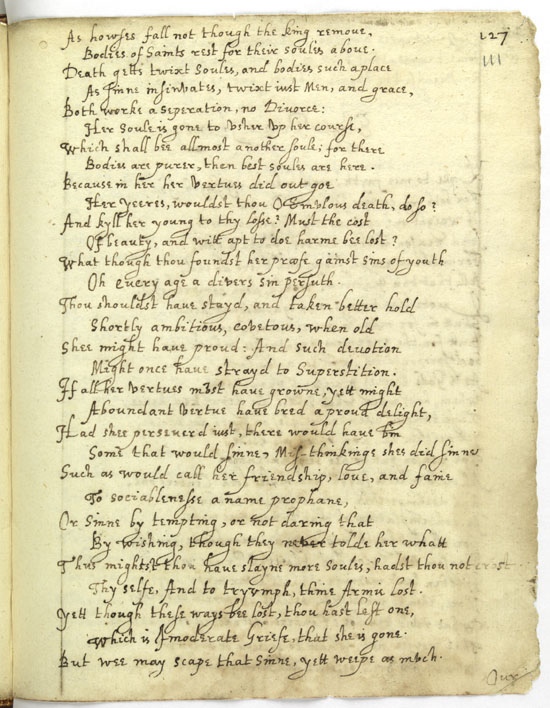 127
111
As howses fall not though the king remove,
Bodies of Saints rest for their soules above.
Death getts twixt Soules, and bodies such a place
As sinne insinuates, twixt iust Men, and grace,
Both works a seperation, no Divorce:
Her Soule is gone to vsher vp her course,
Which shall bee allmost another soule; for there
Bodies are purer, then best soules are here.
Because in her her vertues did out goe
Her yeeres, wouldst thou O emulous death, do so?
And kyll her young to thy losse? Must the cost
Of beauty, and witt apt to doe harme bee lost?
What though thou foundst her proofe gainst sins of youth
Oh every age a divers sin persuth.
Thou shouldst have stayd, and taken better hold
Shortly ambitious, covetous, when old
Shee might have proud: And such devotion
Might once have strayd to Superstition.
If all her vertues must have growne, yett might
Aboundant vertue have bred a proud delight,
Had shee persever'd iust, there would have bin
Some that would sinne, Mis-thinkinge she did sinne
Such as would call her friendship, love, and faine
To sociablenesse a name prophane,
Or sinne by tempting, or not daring that
By wishing, though they never tolde her whatt
Thus mightst thou have slayne more Soules, hadst thou not crost
Thy selfe, And to tryvmph, thine Armie lost.
Yett though these ways bee lost, thou hast left one,
Which is Immoderate Griefe, that she is gone.
But wee may scape that Sinne, yett weepe as mvch.
Our